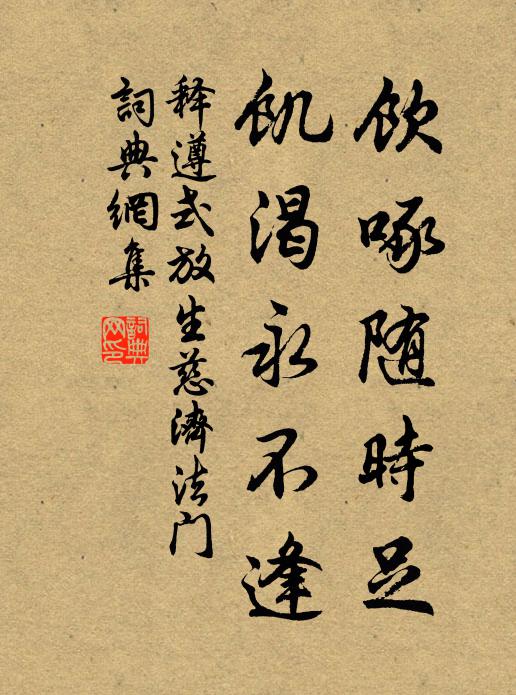 飲啄随時足
飢渴永不逢
释遵式放生慈濟法门
詞典網集
詞典网印